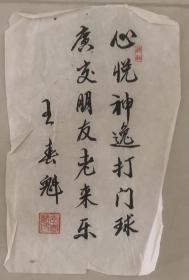 心悦神逸打门球
广交朋友老来乐
王春魁